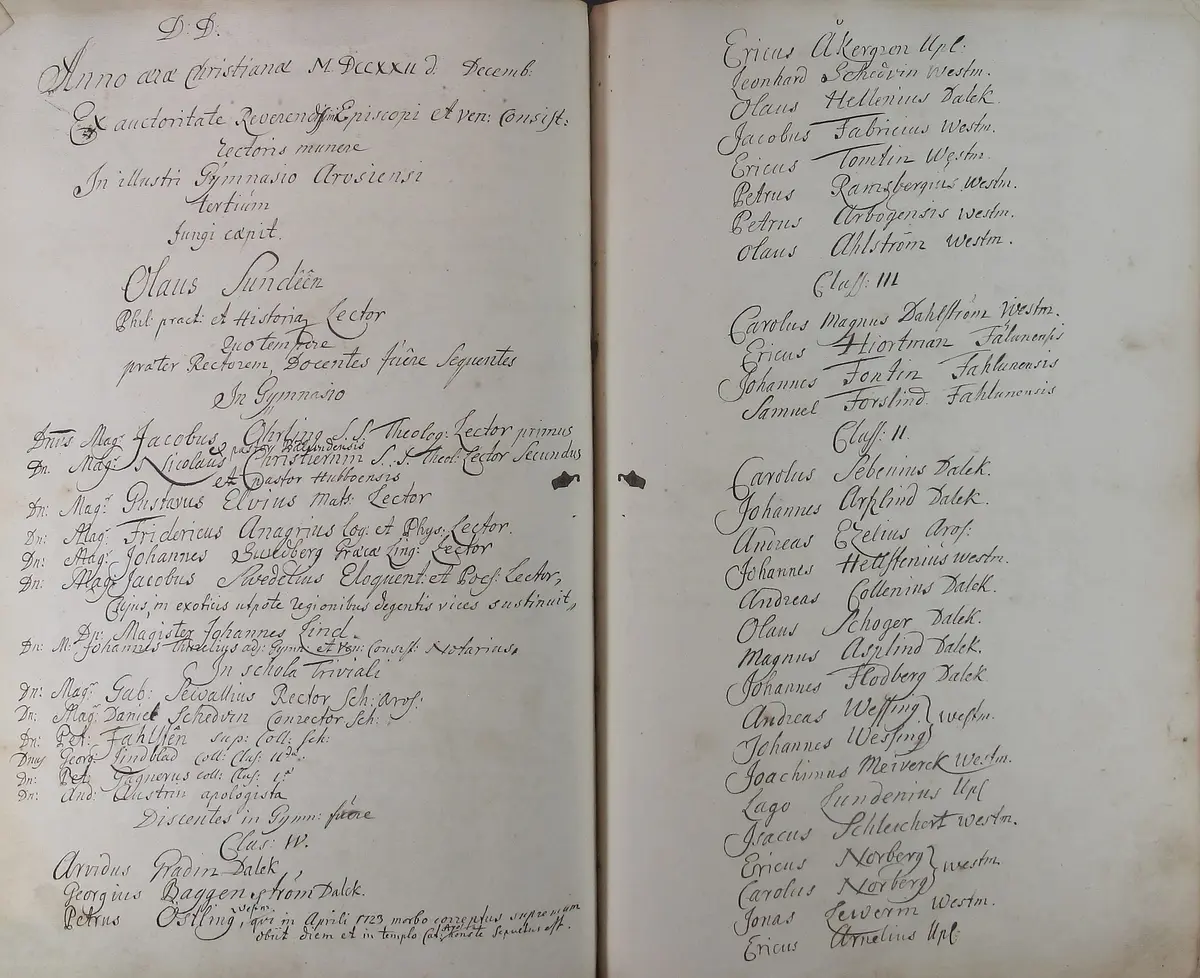 D: D:
Anno æræ Christianæ MDCCXXII d. Decemb:
Ex auctoritate Reverendissimi Episcopi et ven: Consist:
rectoris munere
In illustri Gymnasio Arosiensi
tertium
fungi cæpit.
Olaus Sundêên
Phil: pract: et Historiar Lector
Quo tempore
præter Rectorem, Docentes fuêre Sequentes
In Gymnasio
Dnus Mag. Jacobus Ohrling S.S. Theolog: Lector primus
& pastor
Dn: Mag: Nicolaus Christiernin S.S. Theol: Lector Secundus
et pastor Hubboensis
Dn: Mag: Gustavus Elvius Mat: Lector
Dn: Mag: Fridericus Anagrius Log: et Phys: Lector.
Dn: Mag: Johannes Swedberg Græcæ Ling: Lector
Dn: Mag: Jacobus Svedelius Eloquent: et Poes: Lector,
Cujus, in exoticis utpote regionibus degentis vices sustinuit,
Dn: Magister Johannes Lind.
Dn: M: Johannes adj: Gymn: et ven: Consist: Notarius,
In schola Triviali
Dn: Mag: Gab: Sewallius Rector Sch: Aros:
Dn: Mag: Daniel Schedvin Conrector Sch:
Dn: Pet: Fahlsên sup: Coll: Sch:
Dnus Georg: Lindblad coll: Clas: IIdæ
Dn: Pet: Gagnerus coll: Clas: 1æ
Dn: And: Austrin apologista
Discentes in Gymn: fuêre
Clas: IV.
Arvidus Gradin Dalek
Georgius Baggenström Dalek.
Petrus Östling, Westm. qvi in Aprili 1723 morbo correptus supremum
obiit diem et in templo Cat: Aros: honeste sepultus est.
Ericus Åkergren Upl:
Leonhard Schedvin Westm.
Olaus Hellenius Dalek.
Jacobus Fabricius Westm.
Ericus Tomtin Westm.
Petrus Ramsbergius Westm.
Petrus Arbogensis Westm.
Olaus Ahlström Westm.
Class: III
Carolus Magnus Dahlström Westm.
Ericus Hiortman Falunensis
Johannes Fontin Fahlunensis
Samuel Forslind. Fahlunensis
Class: II.
Carolus Sebenius Dalek.
Johannes Asplind Dalek.
Andreas Ezelius Aros:
Johannes Hellstenius Westm.
Andreas Collenius Dalek.
Olaus Schoger Dalek.
Magnus Asplind Dalek.
Johannes Flodberg Dalek.
Andreas Wessing } Westm.
Johannes Wessing
Joachimus Meiverck Westm.
Lago Lundenius Upl
Isacus Schleichert Westm.
Ericus Norberg } Westm.
Carolus Norberg
Jonas Lewerin Westm.
Ericus Arnelius Upl: